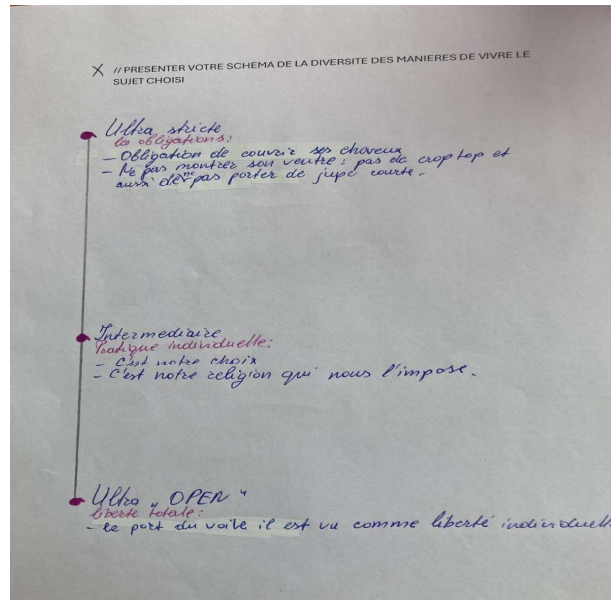 X // PRESENTER VOTRE SCHEMA DE LA DIVERSITE DES MANIERES DE VIVRE LE
SUJET CHOISI
Ultra stricte
les obligations:
- Obligation de couvrir ses cheveux
- Ne pas montrer son ventre : pas de crop top et
aussi de ne pas porter de jupe courte.
Intermediaire
Pratique individuelle:
- C'est notre choix
- C'est notre religion qui nous l'impose.
Ultra "OPEN"
liberté totale:
- le port du voile il est vu comme liberté individuell